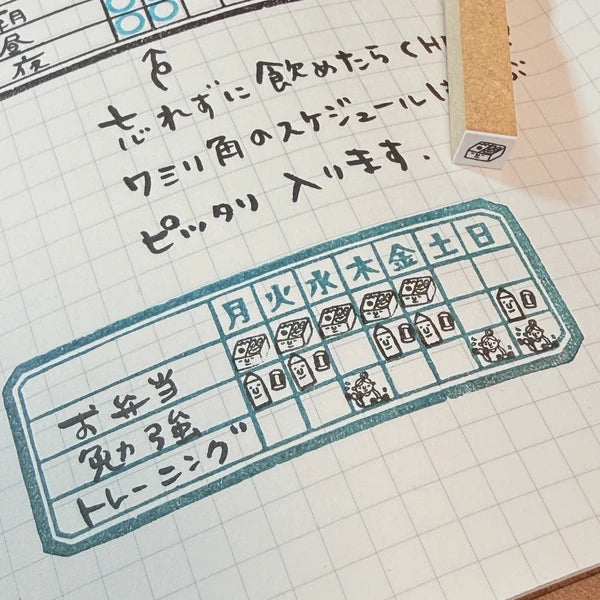 朝
昼
夜
忘れずに飲めたら CHE
7ミリ角のスケジュール
ピッタリ入ります.
月 火 水 木 金 土 日
お弁当
勉強
トレーニング